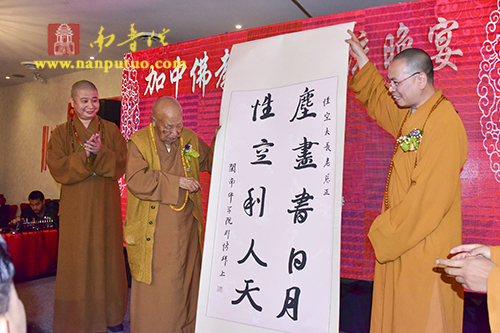 南普陀
www.nanputuo.com
加中佛教
晚宴
性空大長老慈正
塵畫書日月
性空利人天
閩南佛学院